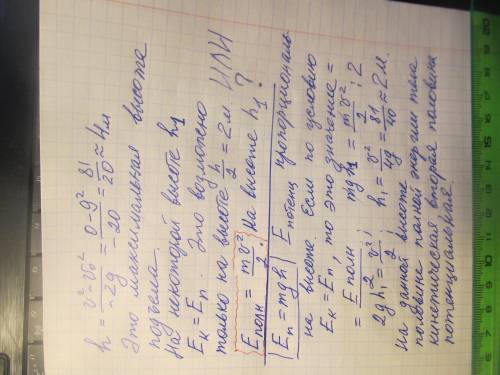 h = (v² - v₀²)/(-2g) = (0 - 9²)/(-20) = 81/20 ≈ 4м
Это максимальная высота
подъема.
На некоторой высоте h₁
Eк = Eп. Это возможно
только на высоте h/2 = 2м ИЛИ
Eполн = mv²/2. На высоте h₁ ?
Eп = mgh Eпотенц пропорциональ
на высоте. Если по условию
Eк = Eп, то это значение =
= Eполн/2 ; mgh₁ = mv²/2 : 2
2gh₁ = v²/2 ; h₁ = v²/4g = 81/40 ≈ 2м.
На данной высоте
половина полной энергии тела
кинетическая вторая половина
потенциальная
20